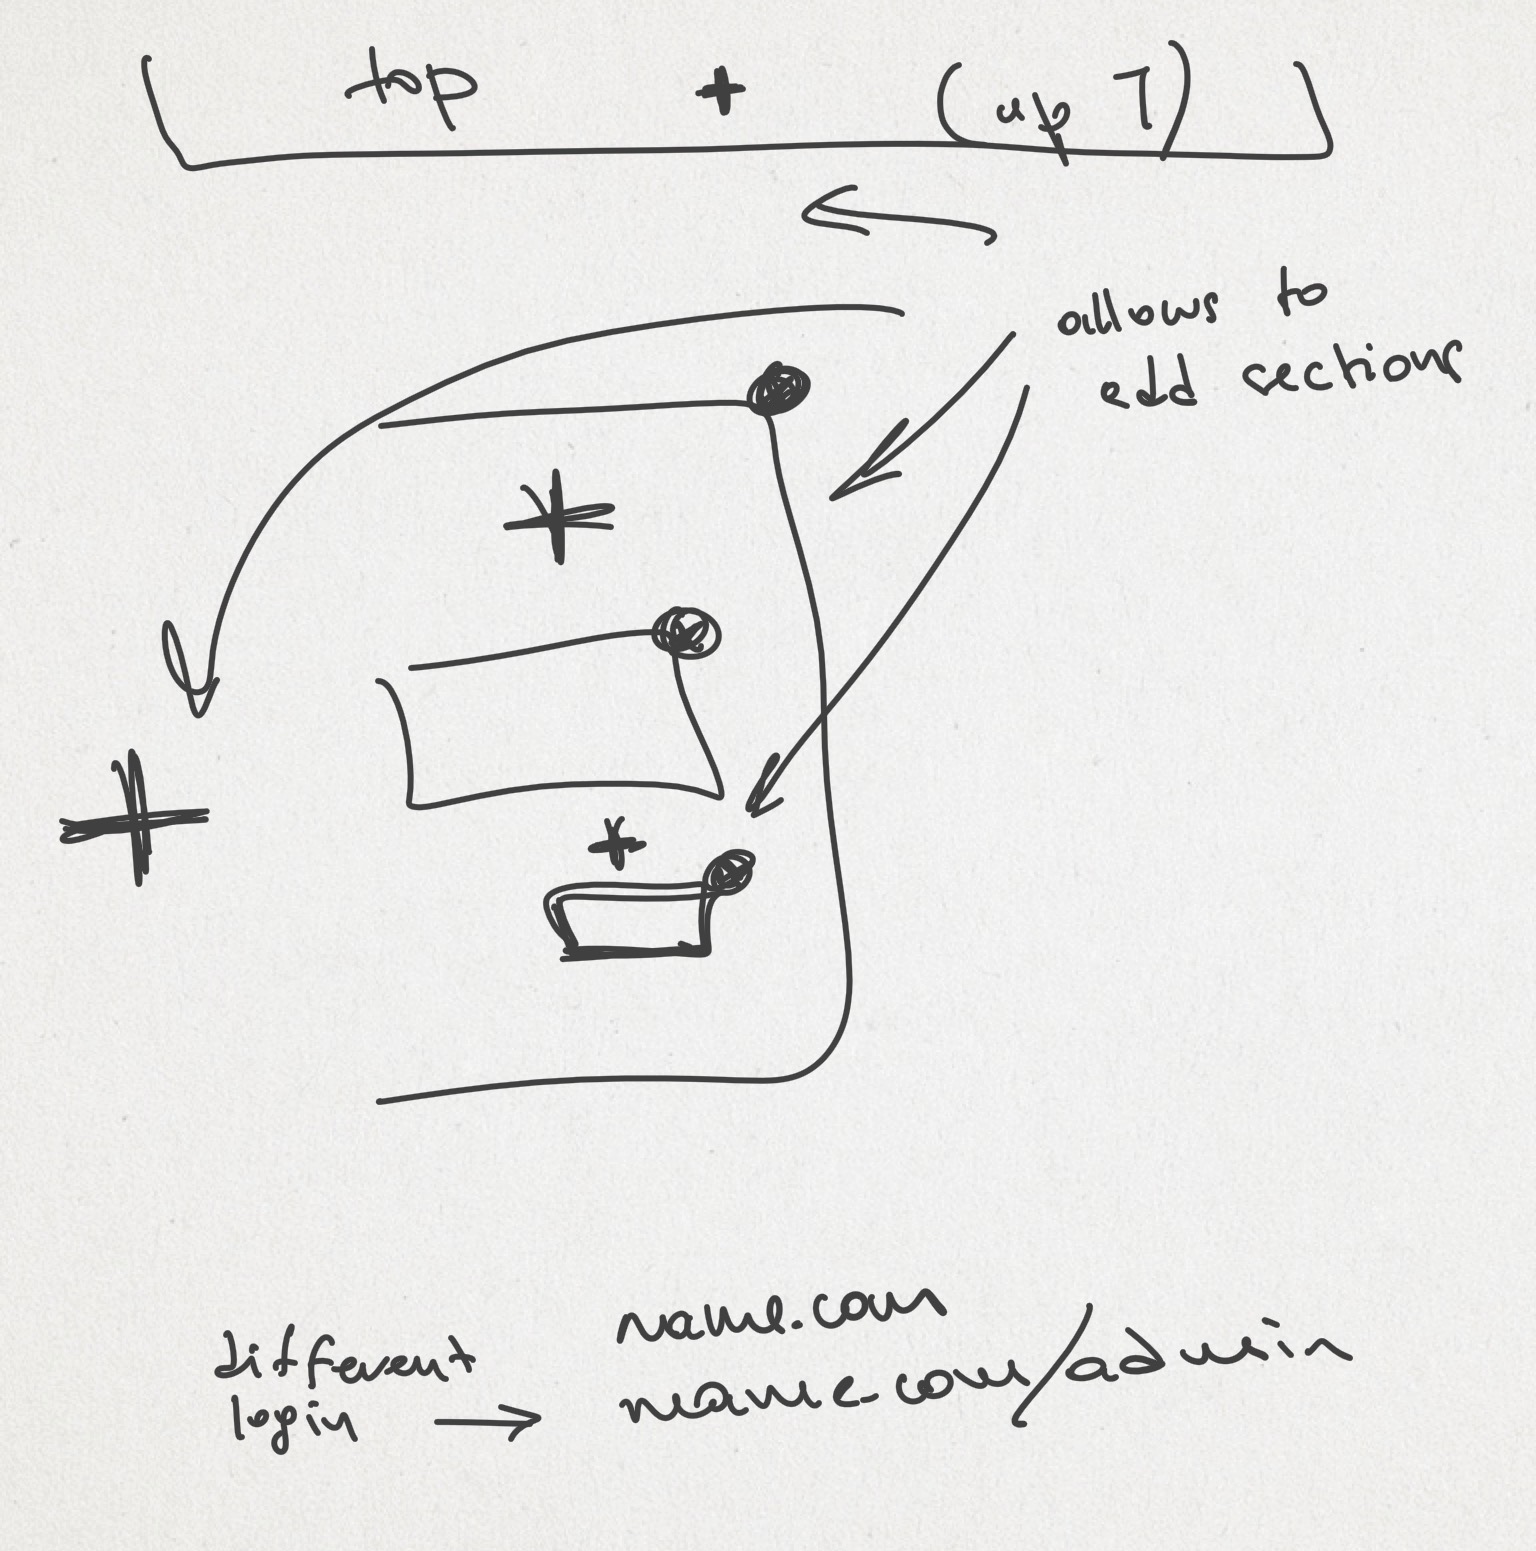 top + (up 7)
allows to
add sections
+
+
+
different
login →
name.com
name.com/admin